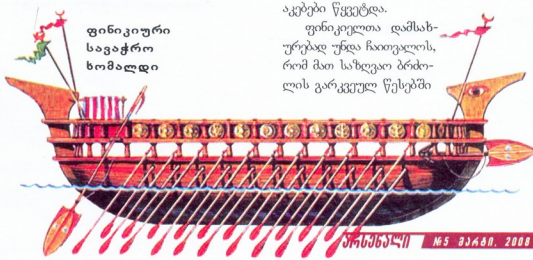 ფინიკიური
სავაჭრო
ხომალდი
აკებები წყვეტდა.
ფინიკიელთა დამსახ-
ურებად უნდა ჩაითვალოს,
რომ მათ საზღვაო ბრძო-
ლის გარკვეულ წესებში
არსენალი №5 მარტი, 2008